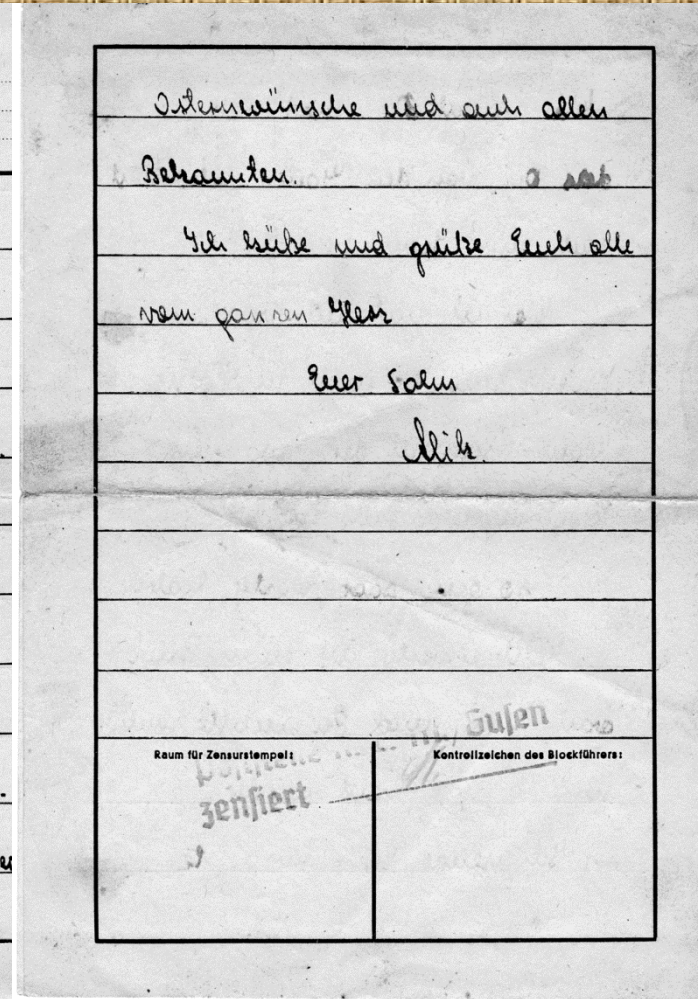 Osternwünsche und auch allen
Bekannten.
Ich küße und grüße Euch alle
vom ganzen Herz
Euer Sohn
Gusen
Raum für Zensurstempel:
Kontrollzeichen des Blockführers:
zensiert